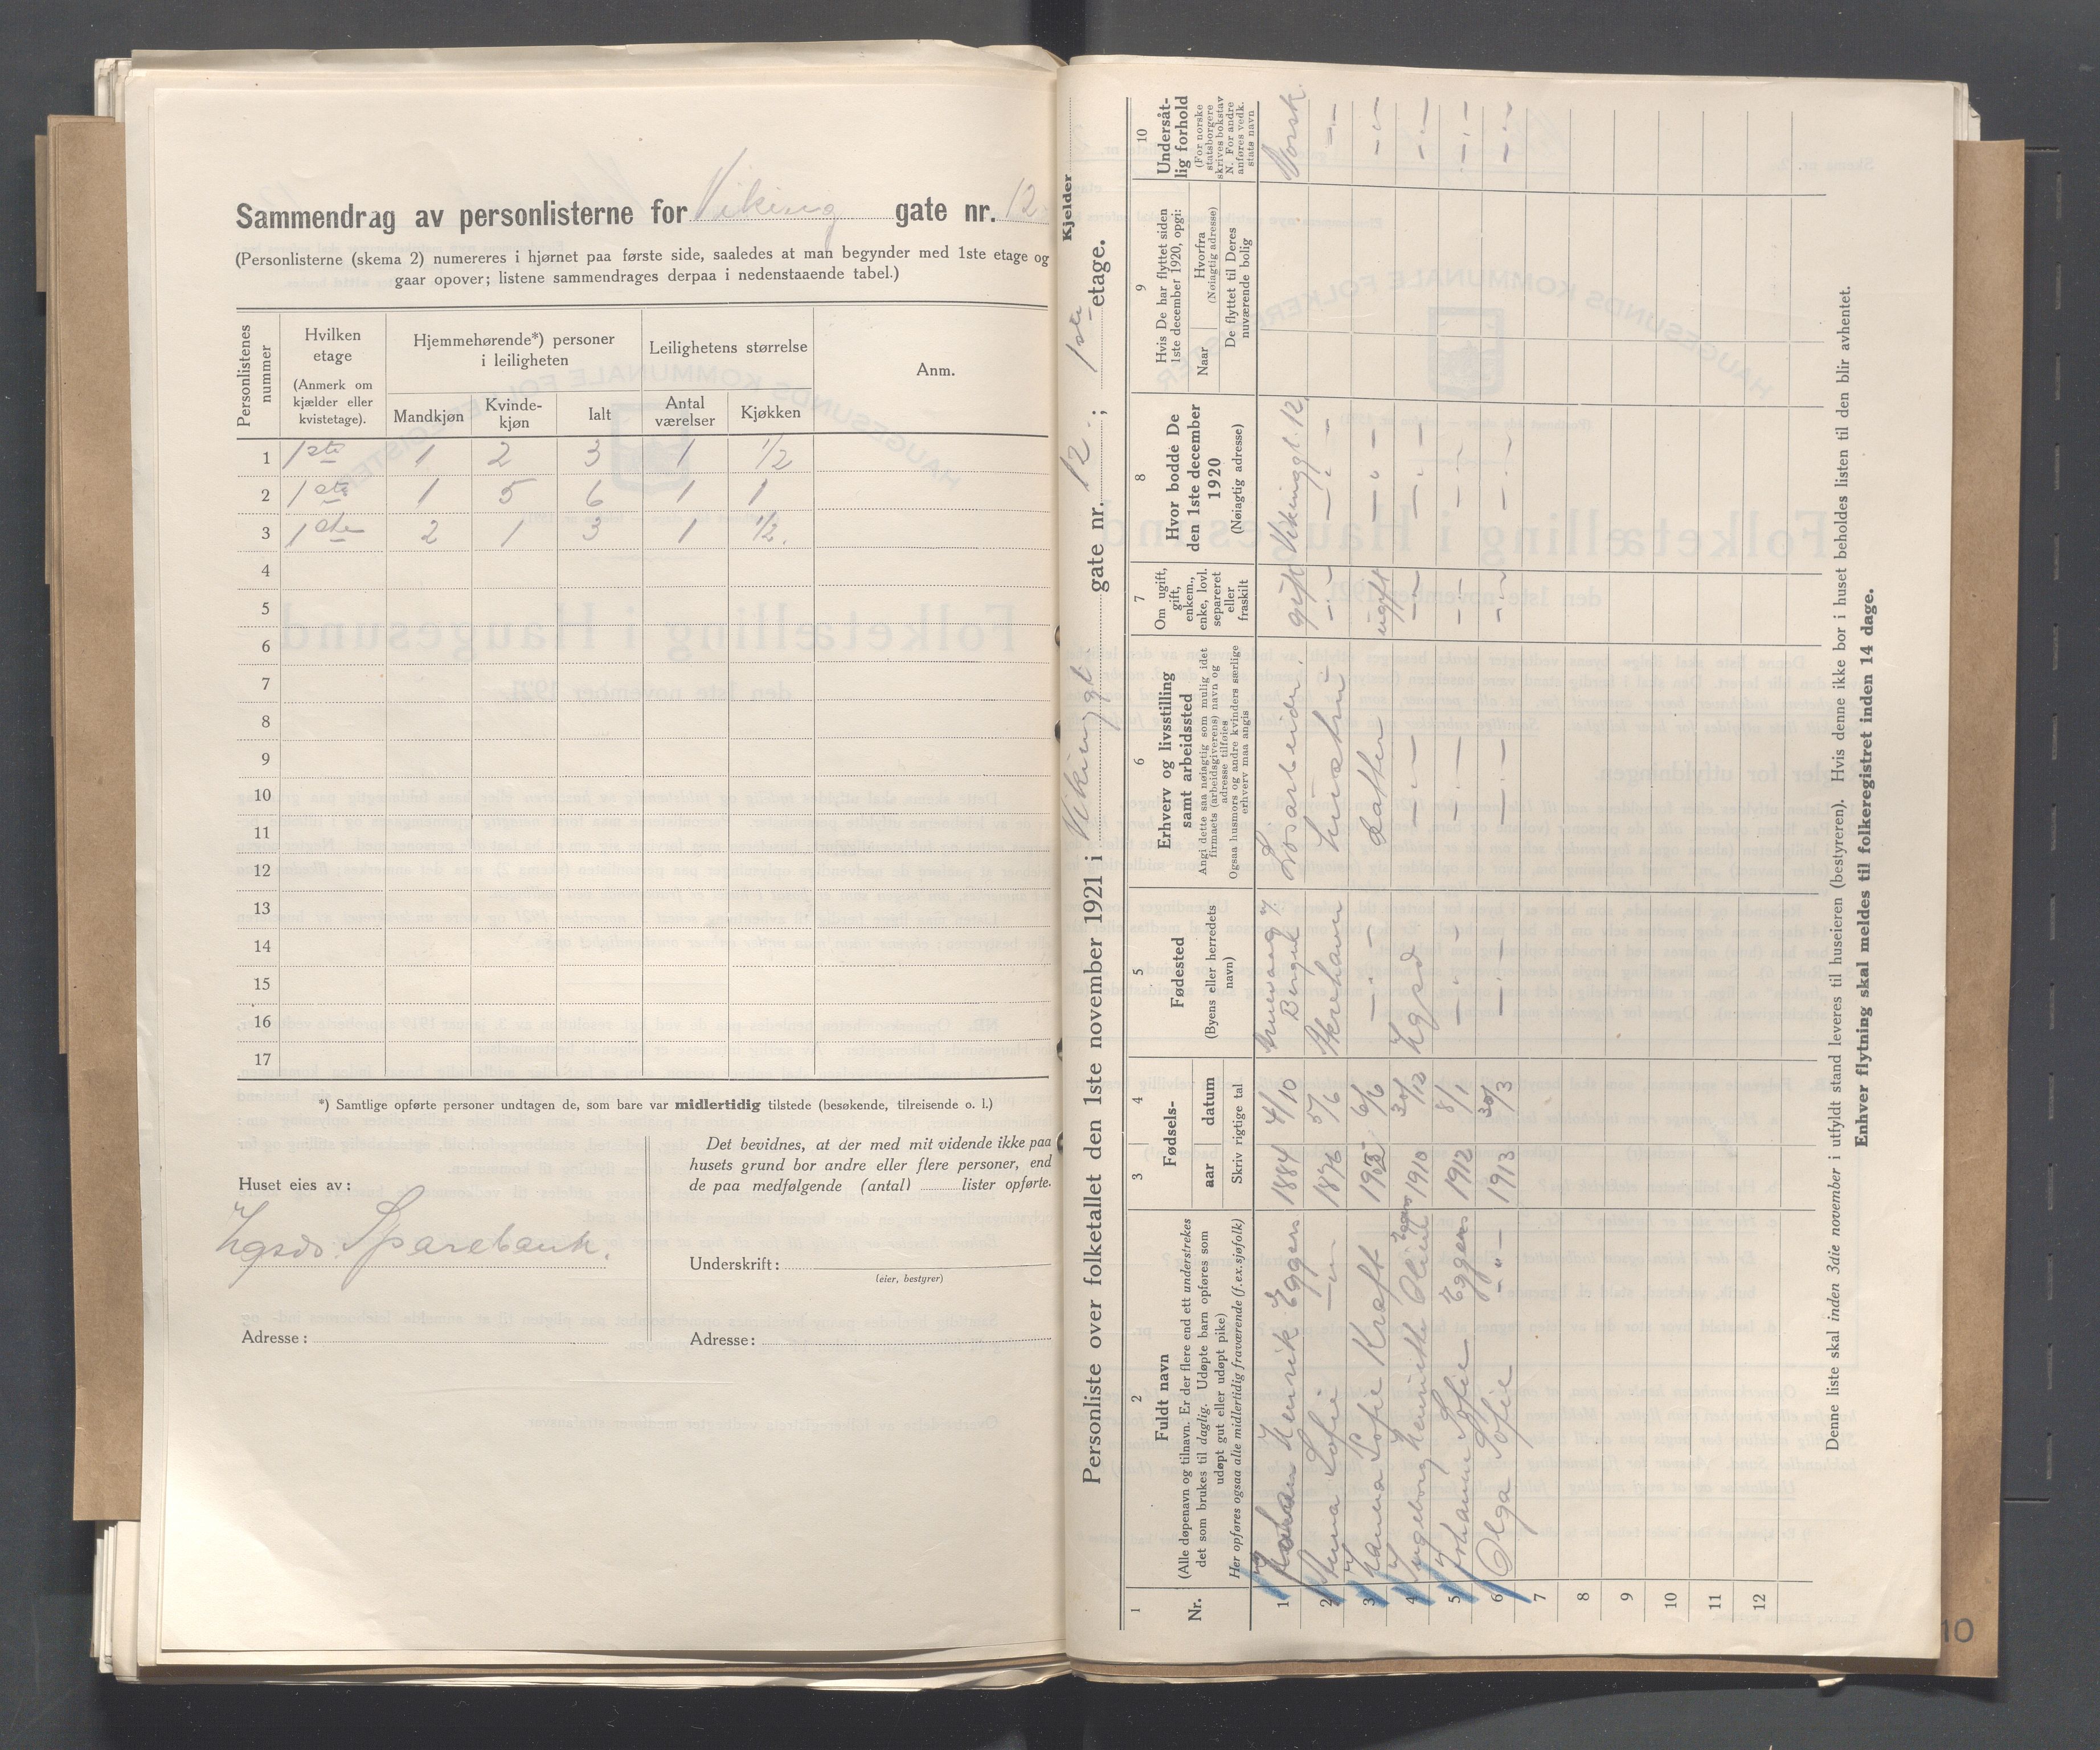 Sammendrag av personlisterne for Viking gate nr. 12
(Personlisterne (skema 2) numereres i hjørnet paa første side, saaledes at man begynder med 1ste etage og
gaar opover; listene sammendrages derpaa i nedenstaaende tabel.)
Personlistenes nummer
Hvilken etage (Anmerk om kjælder eller kvistetage).
Hjemmehørende*) personer i leiligheten
Leilighetens størrelse
Anm.
Mandkjøn Kvinde-kjøn Ialt Antal værelser Kjøkken
1 1ste 1 2 3 1 1/2
2 1ste 1 5 6 1 1
3 1ste 2 1 3 1 1/2.
4
5
6
7
8
9
10
11
12
13
14
15
16
17
*) Samtlige opførte personer undtagen de, som bare var midlertidig tilstede (besøkende, tilreisende o. l.)
Huset eies av:
Hgsds. Sparebank.
Adresse:
Det bevidnes, at der med mit vidende ikke paa
husets grund bor andre eller flere personer, end
de paa medfølgende (antal) lister opførte.
Underskrift:
(eier, bestyrer)
Adresse:
Kjelder
Personliste over folketallet den 1ste november 1921 i Vikinggt. gate nr. 12. ; 1ste etage.
1 2 3 4 5 6 7 8 9 10
Nr.
Fuldt navn
(Alle døpenavn og tilnavn. Er der flere end ett understrekes
det som brukes til daglig. Udøpte barn opføres som
udøpt gut eller udøpt pike)
Her opføres ogsaa alle midlertidig fraværende (f.ex.sjøfolk)
Fødsels-
aar datum
Skriv rigtige tal
Fødested
(Byens eller herredets
navn)
Erhverv og livsstilling
samt arbeidssted
Angi dette saa nøiagtig som mulig idet
firmaets (arbeidsgiverens) navn og
adresse tilføies
Ogsaa husmors og andre kvinders særlige
erhverv maa angis
Om ugift,
gift,
enkem.,
enke, lovl.
separeret
eller
fraskilt
Hvor bodde De
den 1ste december
1920
(Nøiagtig adresse)
Hvis De har flyttet siden
1ste december 1920, opgi:
Naar
Hvorfra
(Nøiagtig adresse)
De flyttet til Deres
nuværende bolig
Undersåt-
lig forhold
(For norske
statsborgere
skrives bokstav
N. For andre
anføres vedk.
stats navn
1 Johan Henrik Eggers 1884 4/10 Bergen Løsarbeider. gift Vikinggt. 12. Norsk.
2 Anna Sofie —"— 1876 5/6 Skrehavn hustru —"— —"— —"—
3 Hanna Sofie Kraft 6/6 —"— datter ugift —"— —"—
4 Ingeborg Henrikke Eggers 1910 30/12 Hgsd —"— —"— —"— —"—
5 Johanne Sofie Eggers 1912 8/1 —"— —"— —"— —"— —"—
6 Olga Sofie —"— 1913 30/3 —"— —"— —"— —"— —"—
7
8
9
10
11
12
Denne liste skal inden 3die november i utfyldt stand leveres til huseieren (bestyreren). Hvis denne ikke bor i huset beholdes listen til den blir avhentet.
Enhver flytning skal meldes til folkeregistret inden 14 dage.
10